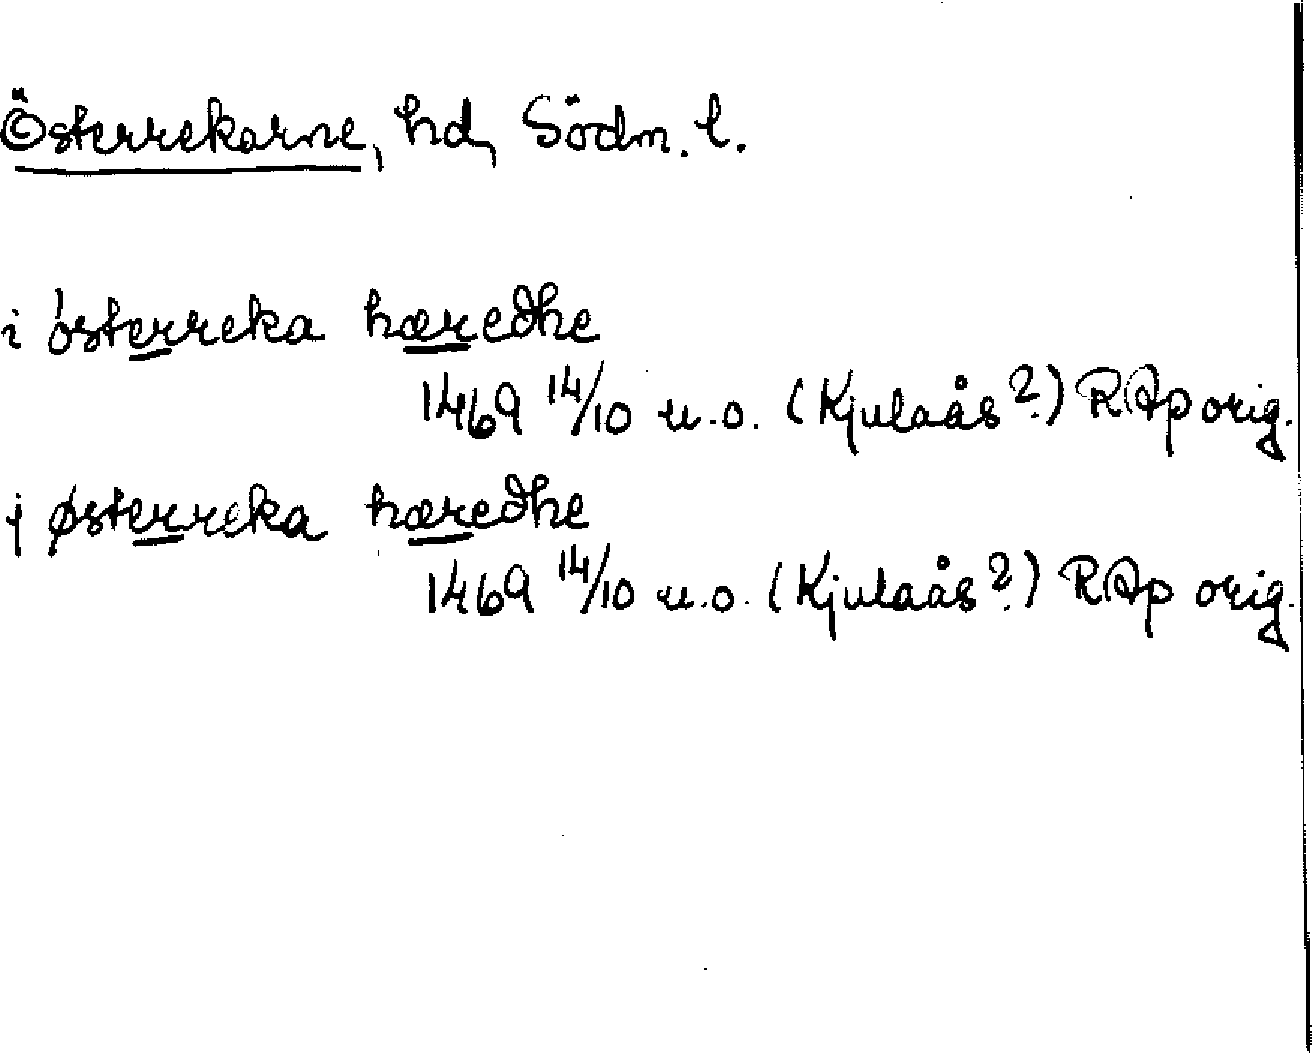 Österrekarne, hd, Södm. l.
i österreka hæredhe
1469 14/10 u.o. (Kjulaås?) RAp orig.
j østerreka hæredhe
1469 14/10 u.o. (Kjulaås?) RAp orig.